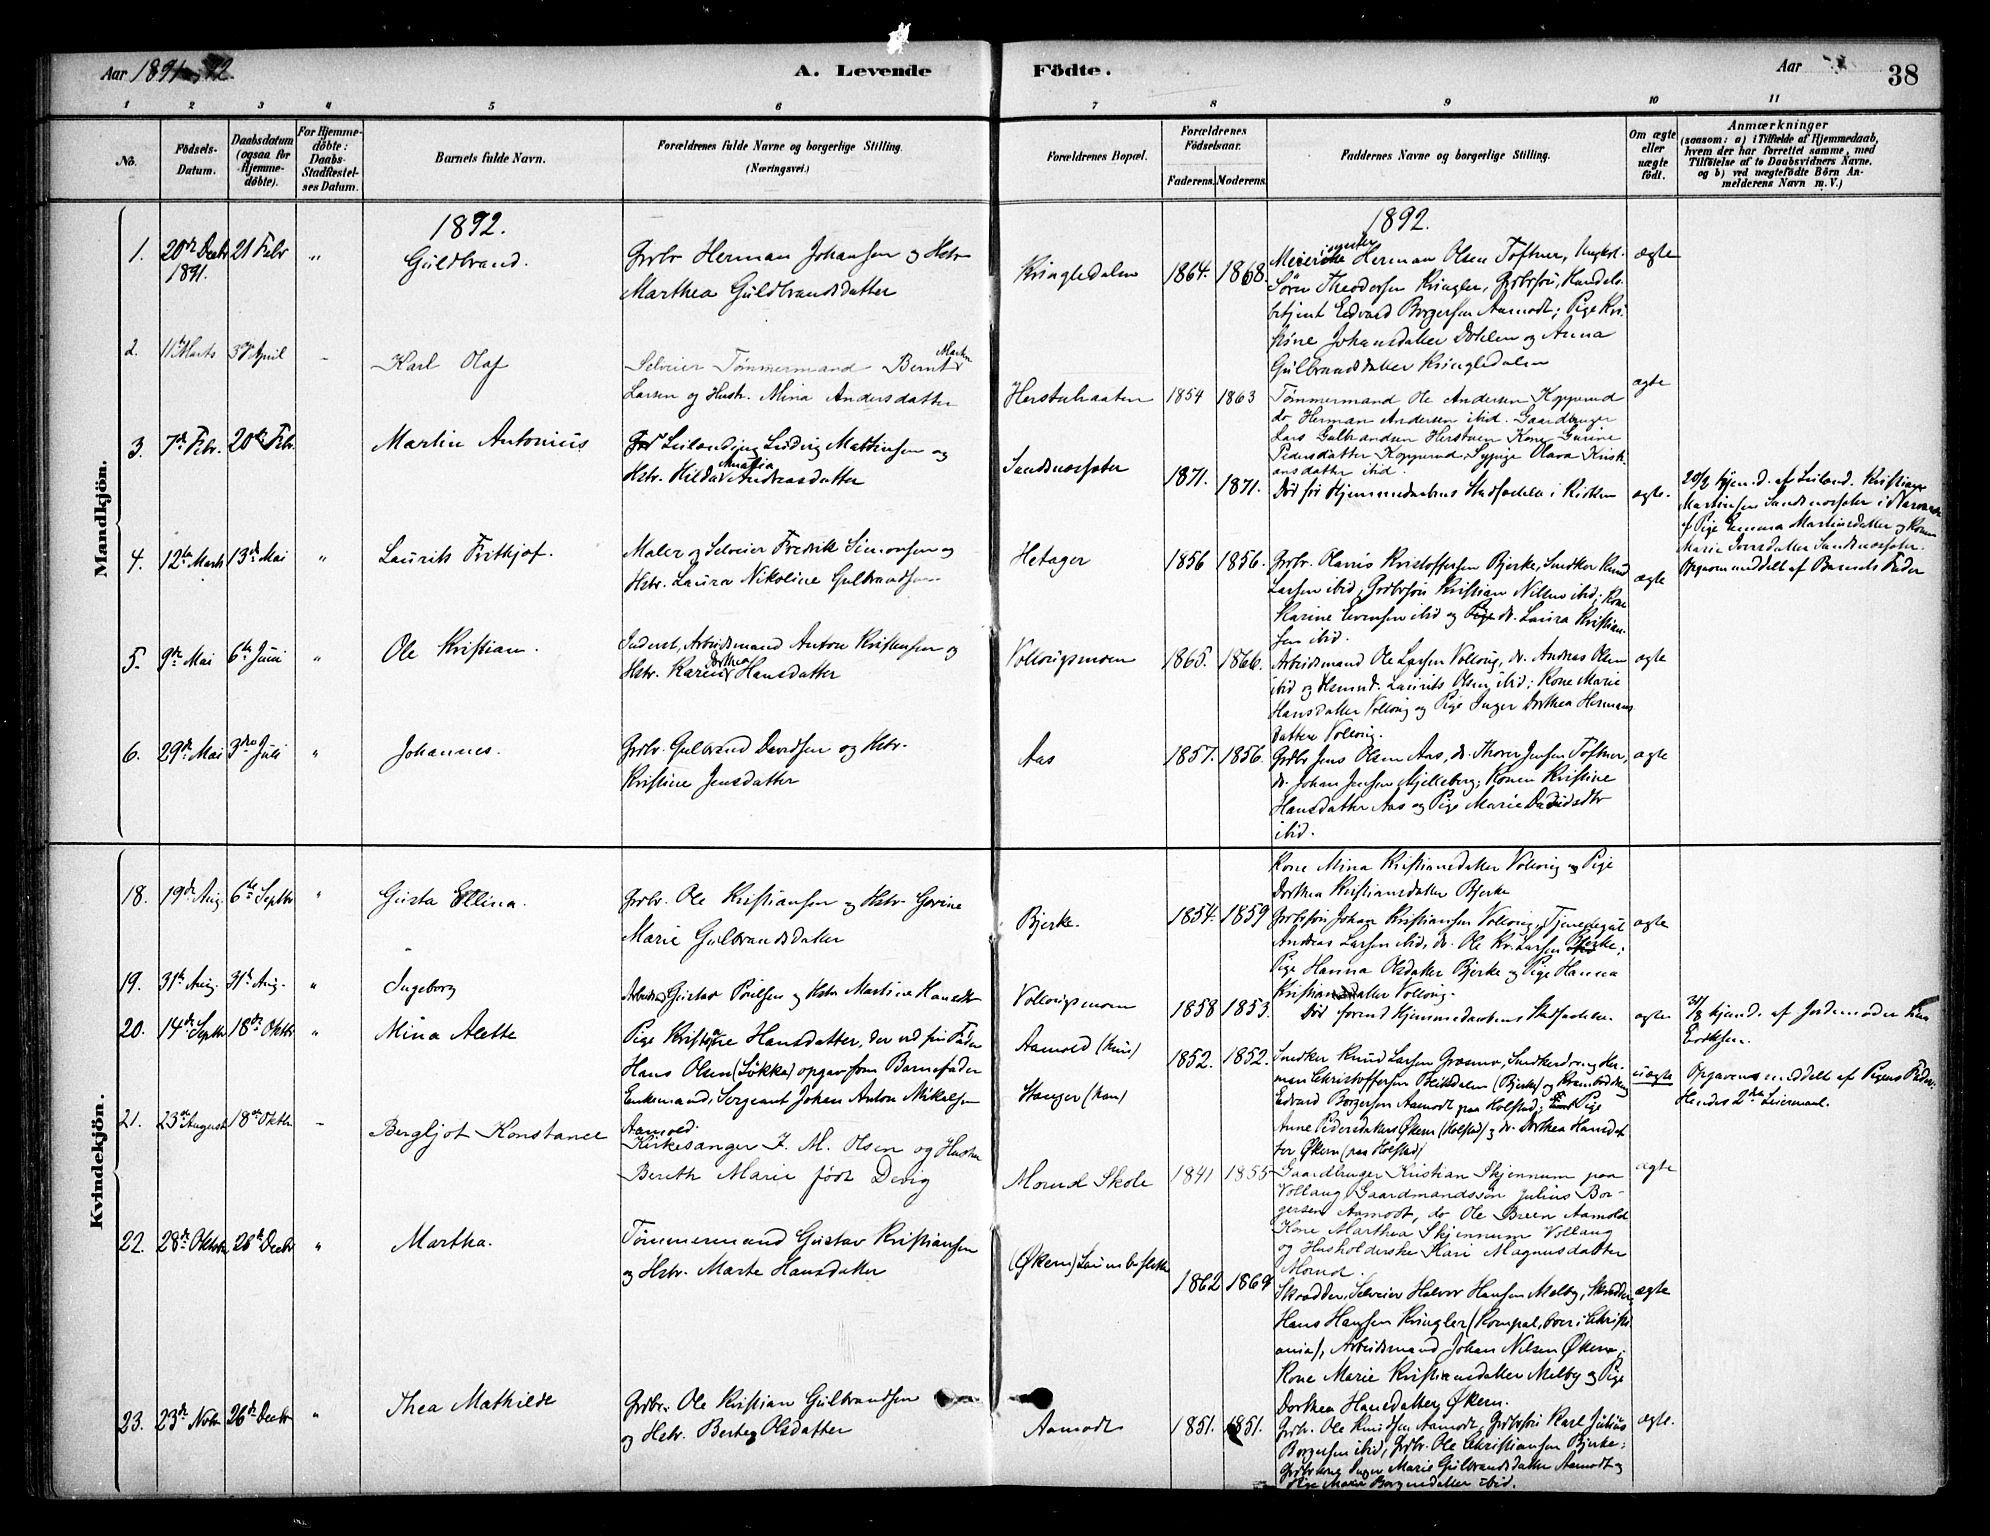 Aar 1891-92.
A. Levende Födte.
Aar
38
1 2 3 4 5 6 7 8 9 10 11
No.
Födsels-Datum.
Daabsdatum (ogsaa for Hjemme-döbte).
For Hjemme-döbte: Daabs-Stadfæstel-ses Datum.
Barnets fulde Navn.
Forældrenes fulde Navne og borgerlige Stilling. (Næringsvei.)
Forældrenes Bopæl.
Forældrenes Födselsaar.
Faderens. Moderens.
Faddernes Navne og borgerlige Stilling.
Om ægte eller uægte födt.
Anmærkninger
(saasom: a) i Tilfælde af Hjemmedaab, hvem der har forrettet samme, med Tilföielse af to Daabsvidners Navne, og b) ved uægtefödte Börn An-melderens Navn m. V.)
Mandkjön.
1892.
1892.
1. 20de Decbr 1891. 21 Febr " Guldbrand.
Grdbr Herman Johansen og Hstr
Marthea Guldbrandsdatter
Kringledalen 1864. 1868.
Herman Olsen Toftner, Ungkol.
Søren Theodorsen Kringler, Grdbrsøn, Handels-
betjent Edvard Borgersen Aamodt; Pige Kri-
stine Johansdatter Dahlen og Anna
Gulbrandsdatter Kringledalen
ægte
2. 11te Marts 3die April - Karl Olaf
Selveier Tømmermand Bernt Martin
Larsen og Hustr. Mina Andersdatter
1854 1863
Tømmermand Ole Andersen Kopperud
do Herman Andersen ibid. Gaardbruger
Lars Gulbrandsen Herstuen Kone Gurine
Pedersdatter Kopperud, Sypige Olava Krist-
iansdatter ibid.
ægte
3. 7de Febr. 20de Febr. Martin Antonius
Leilending Ludvig Mathinsen og
Hstr. Hilda Amalia Andreasdatter
Sandmosæter 1871. 1871.
Død før Hjemmedaabens Stadfæstelse i Kirken
ægte.
20/2 hjemd. af Leilend. Kristian
Martinsen Sandmosæter i Nærværelse
af Pige Emma Martinsdatter og Konen
Marie Iversdatter Sandmosæter.
Opgaven meddelt af Barnets Fader
4. 12te Marts 13de Mai " Laurits Frithjof.
Maler og Selveier Fredrik Simonsen og
Hstr. Laura Nikoline Gulbrandsen
Hetager 1856 1856.
Grdbr. Olavus Kristoffersen Bjerke, Snedker Knud
Larsen ibid, Grdbrsøn Kristian Nilsen ibid; Kone
Karine Evensen ibid og do. Laura Kristian-
sen ibid.
ægte
5. 9de Mai 6te Juni " Ole Kristian.
Inderst, Arbeidsmand Anton Kristensen og
Hstr. Karen Dorthea Hansdatter
Vollaugsmoen 1865. 1866.
Arbeidsmand Ole Larsen Vollaug, do. Andreas Olsen
ibid og Husmd. Laurits Olsen ibid; Kone Marie
Hansdatter Vollaug og Pige Inger Dorthea Hermans
datter Vollaug.
ægte
6. 29de Mai 3die Juli " Johannes.
Grdbr. Gulbrand Davidsen og Hstr.
Kristine Jensdatter
Aas 1857. 1856.
Grdbr Jens Olsen Aas, do. Thorer Jensen Toftner,
do. Johan Jensen Mjelleberg; Konen Kristine
Hansdatter Aas og Pige Marie Davidsdtr
ibid.
ægte
Kvindekjön.
18. 19de Aug. 6te Septbr " Gusta Ellina.
Grdbr. Ole Kristiansen og Hstr. Gorine
Marie Gulbrandsdatter
Bjerke. 1854. 1859
Kone Mina Kristiansdatter Vollaug og Pige
Dorthea Kristiansdatter Bjerke
Grdbrsøn Johan Kristiansen Vollaug, Tjenestegut
Andreas Larsen ibid, do. Ole Kr. Larsen Bjerke;
Pige Hanna Olsdatter Bjerke og Pige Hanna
Kristiansdatter Vollaug.
ægte
19. 31te Aug. 31te Aug. " Ingeborg
Arbeidsmd Gustav Poulsen og Hstr Martine Hansdtr
Vollaugsmoen 1858 1853.
Død forend Hjemmedaabens Stadfæstelse.
ægte
31/8 hjemd. af Jordemoder
20. 14de Septbr 18de Oktbr " Mina Alette
Pige Kristine Hansdatter, der ved sin Fader
Hans Olsen (Løkka) opgav som Barnefader
Enkemand, Sergeant Johan Anton Mikalsen
Aamold.
Aamold (hun)
Stanger (han)
1852. 1852.
Snedker Knud Larsen Grasmo, Snedkerdreng Her-
man Christoffersen Bleikdalen (Bjerke) og
Edvard Borgersen Aamodt paa Holstad; Pige
Anne Pedersdatter Økern (Holstad) og do. Dorthea Hansdat-
ter Økern (paa Holstad)
uægte
Opgaven meddelt af Pigens Fader.
Hendes 2det Leiermaal.
21. 23de August 18de Oktbr - Bergljot Konstance
Kirkesanger J. M. Olsen og Hustru
Bereth Marie født Devig
Morud Skole 1841 1855
Gaardbruger Kristian Skjennum paa
Vollaug Gaardmandssøn Julius Bor-
gersen Aamodt, do Ole Breen Aamold
Kone Marthea Skjennum Vollaug
og Husholderske Kari Magnusdatter
Morud.
ægte
22. 28de Oktobr 26de Decbr " Martha.
Tømmermand Gustav Kristiansen
og Hstr. Marte Hansdatter
(Økern) 1862 1869
Skrædder, Selveier Halvor Hansen Melby, Skrædder
Hans Hansen Kringler (Rompal, bor i Christi-
ania), Arbeidsmand Johan Nilsen Økern;
Kone Marie Kristiansdatter Melby og Pige
Dorthea Hansdatter Økern.
ægte
23. 23de Novbr 26de Decbr " Thea Mathilde
Grdbr. Ole Kristian Gulbrandsen
og Hstr. Berte Olsdatter
Aamodt 1851. 1851.
Grdbr. Ole Knudsen Aamodt, Grdbrsøn Karl Julius
Borgersen ibid, Grdbr. Ole Christiansen Bjerke;
Inger Marie Gulbrandsdatter Aamodt og
Pige Maria Borgersdatter ibid.
ægte.